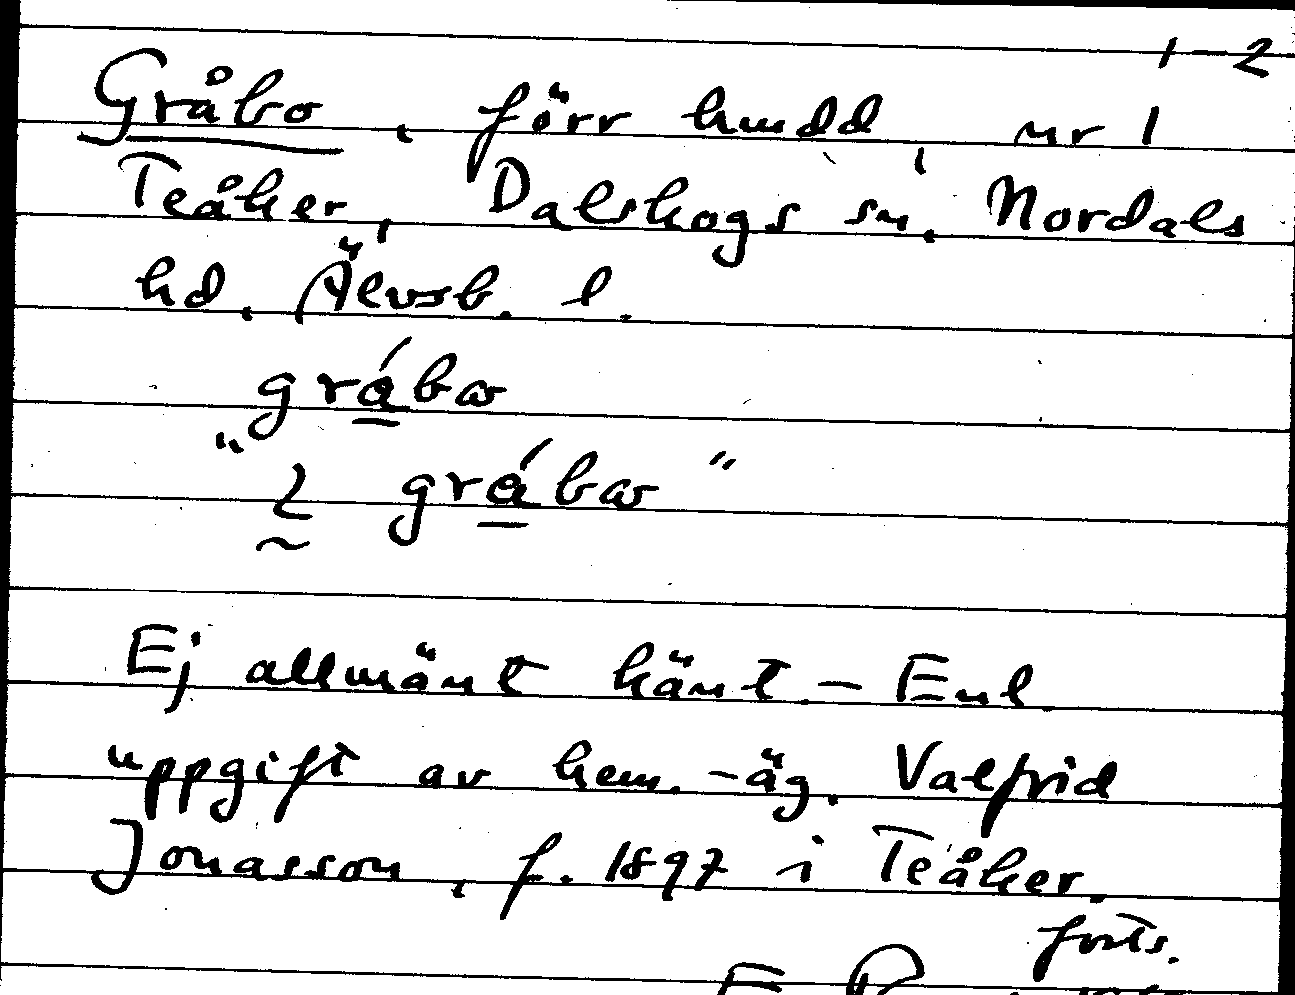 1–2
Gråbo, förr hmdd, nr 1
Teåker, Dalskogs sn, Nordals
hd. Älvsb. l.
gråbω
" 2 gråbω "
Ej allmänt känt. – Enl.
uppgift av hem.-äg. Valfrid
Jonasson, f. 1897 i Teåker.
forts.